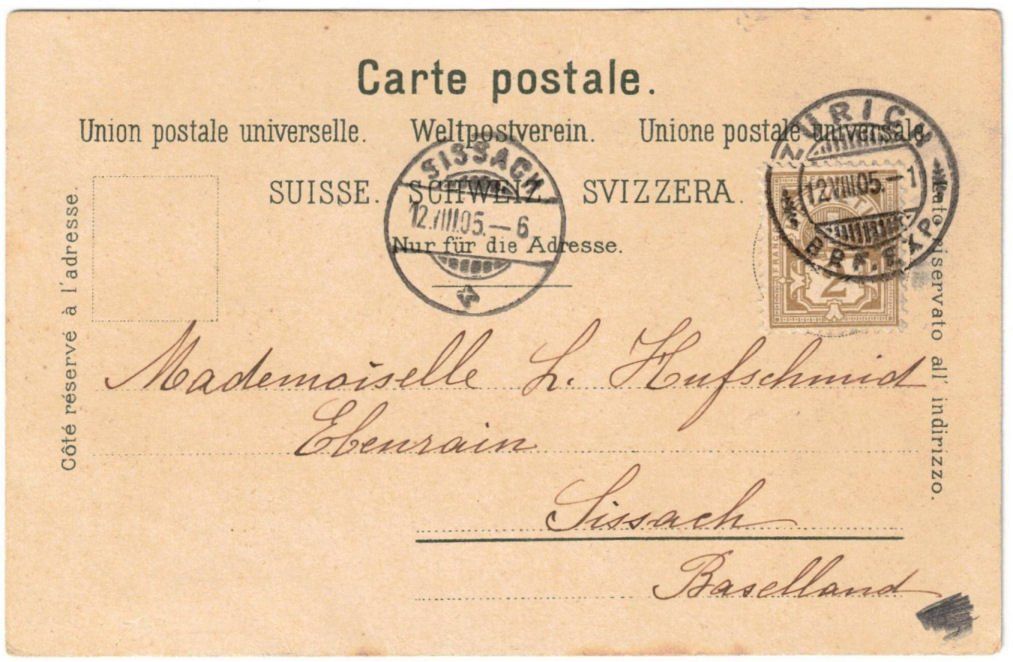 Carte postale.
Union postale universelle. Weltpostverein. Unione postale universale.
SUISSE. SCHWEIZ. SVIZZERA.
Nur für die Adresse.
Côté réservé à l'adresse.
Lato riservato all' indirizzo.
SISSACH
12.VIII.05.–6
ZÜRICH
12.VIII.05.–1
BRF. EXP.
FRANCO
2
Mademoiselle L. Hufschmid
Ebenrain
Sissach
Baselland